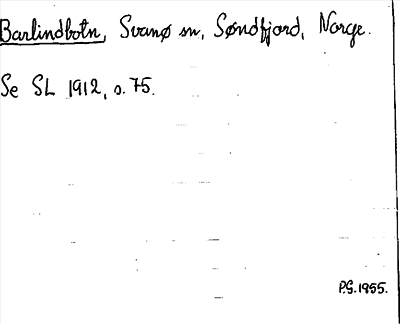 Barlindbotn, Svanø sn, Søndfjord, Norge.
Se SL 1912, s. 75.
P.G. 1955.